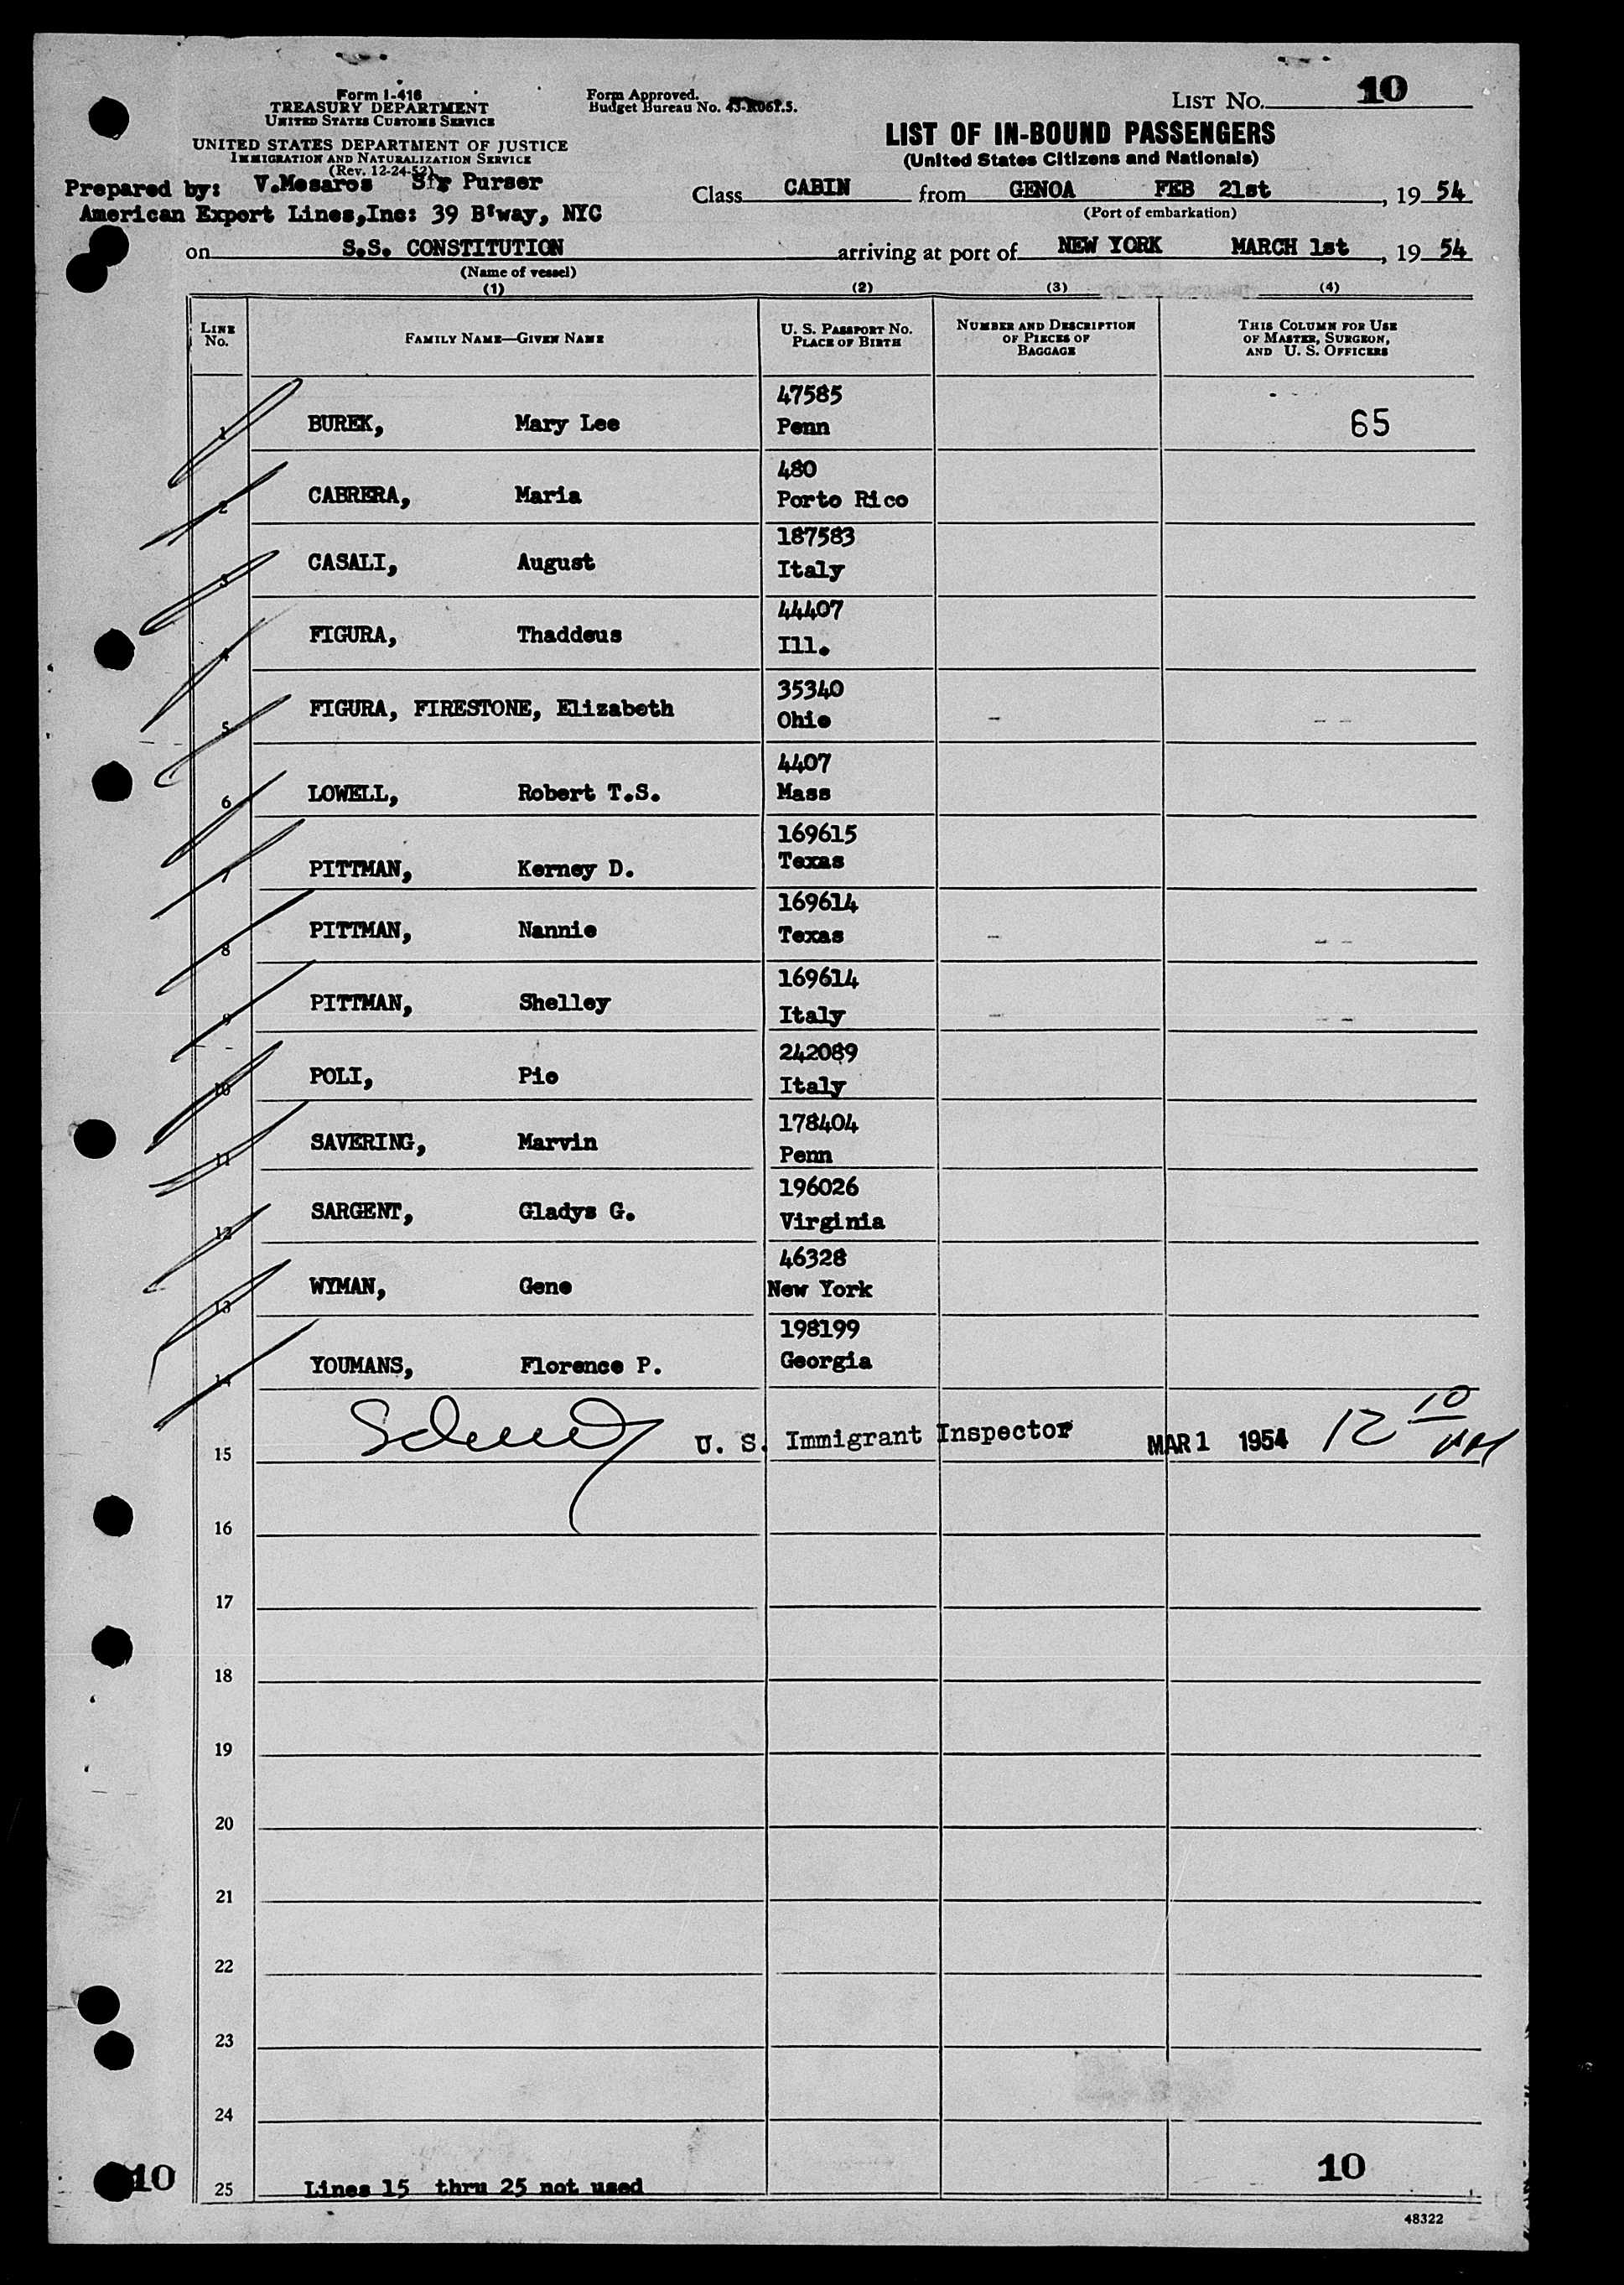 Form I-418
TREASURY DEPARTMENT
UNITED STATES CUSTOMS SERVICE
UNITED STATES DEPARTMENT OF JUSTICE
IMMIGRATION AND NATURALIZATION SERVICE
(Rev. 12-24-52)
Form Approved.
Budget Bureau No.
LIST No. 10
LIST OF IN-BOUND PASSENGERS
(United States Citizens and Nationals)
Prepared by: V.Mesaros Purser
American Export Lines,Inc: 39 B'way, NYC
Class CABIN from GENOA FEB 21st, 19 54
(Port of embarkation)
on S.S. CONSTITUTION arriving at port of NEW YORK MARCH 1st, 19 54
(Name of vessel)
(1) (2) (3) (4)
LINE No. FAMILY NAME—GIVEN NAME U. S. PASSPORT NO. PLACE OF BIRTH NUMBER AND DESCRIPTION OF PIECES OF BAGGAGE THIS COLUMN FOR USE OF MASTER, SURGEON, AND U. S. OFFICERS
47585
1 BUREK, Mary Lee Penn 65
480
2 CABRERA, Maria Porto Rico
187583
3 CASALI, August Italy
44407
4 FIGURA, Thaddeus Ill.
35340
5 FIGURA, FIRESTONE, Elizabeth Ohio
4407
6 LOWELL, Robert T.S. Mass
169615
7 PITTMAN, Kerney D. Texas
169614
8 PITTMAN, Nannie Texas
169614
9 PITTMAN, Shelley Italy
242089
10 POLI, Pio Italy
178404
11 SAVERING, Marvin Penn
196026
12 SARGENT, Gladys G. Virginia
46328
13 WYMAN, Gene New York
198199
14 YOUMANS, Florence P. Georgia
15 U. S. Immigrant Inspector MAR 1 1954 12 10 AM
16
17
18
19
20
21
22
23
24
10 25 Lines 15 thru 25 not used 10
48322